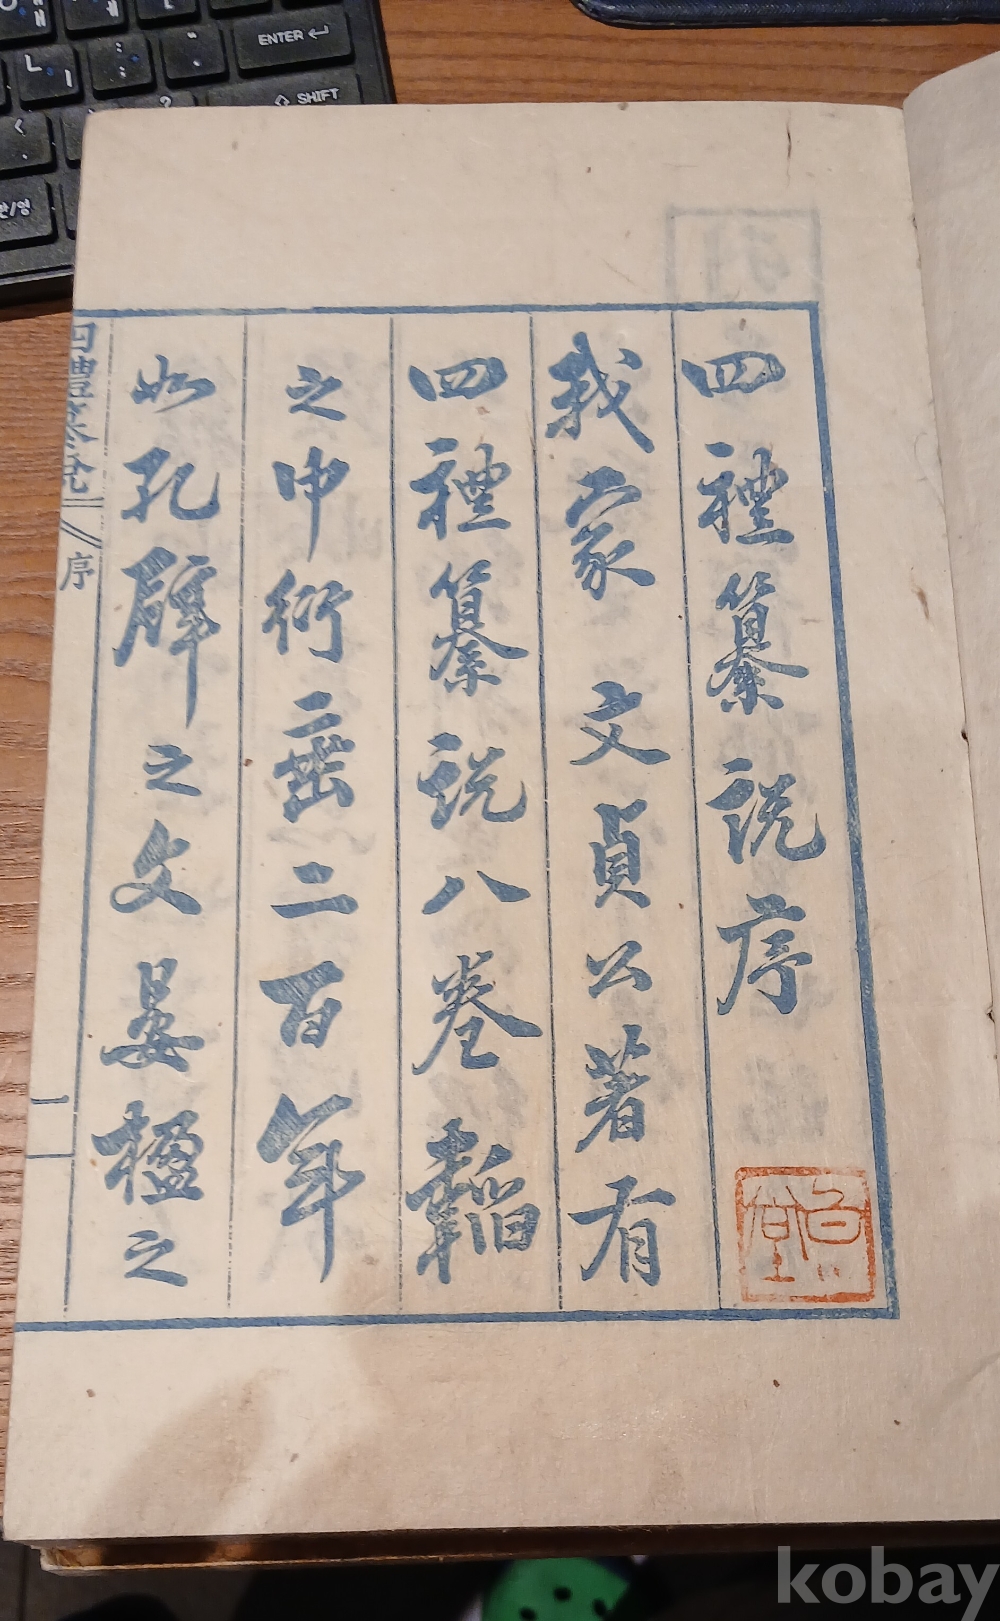 四禮纂說序
我家文貞公著有
四禮纂說八卷韜
之巾衍垂二百年
如孔壁之文晏楹之
四禮纂說
序
一
ENTER
SHIFT
한/영
kobay